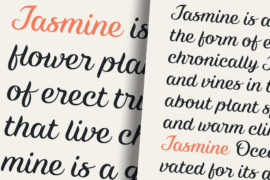 Jasmine is
flower pla
of erect tr
that live c
mine is a g
Jasmine is a
the form of e
chronically J
and vines in t
about plant s
and warm clim
Jasmine Oce
vated for its a